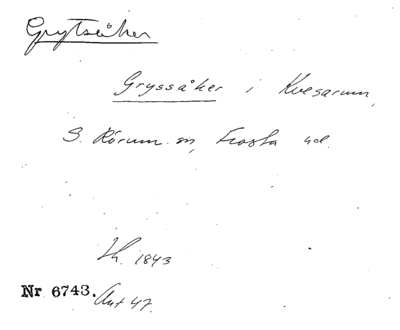 Grytsåker
Gryssåker i Kvesarum,
S. Rörum sn, Frosta hd.
Lh. 1843
Nr 6743. Ant 47.